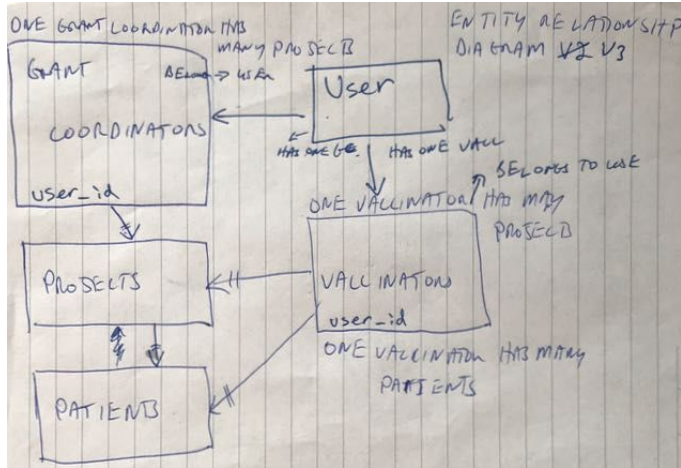 ONE GRANT COORDINATOR HAS
MANY PROJECTS
ENTITY RELATIONSHIP
DIAGRAM V2 V3
GRANT
COORDINATORS
user_id
BELONGS → USER
User
HAS ONE GC.
HAS ONE VACC
BELONGS TO USE
ONE VACCINATOR HAS MANY
PROJECTS
PROJECTS
VACCINATORS
user_id
ONE VACCINATOR HAS MANY
PATIENTS
PATIENTS